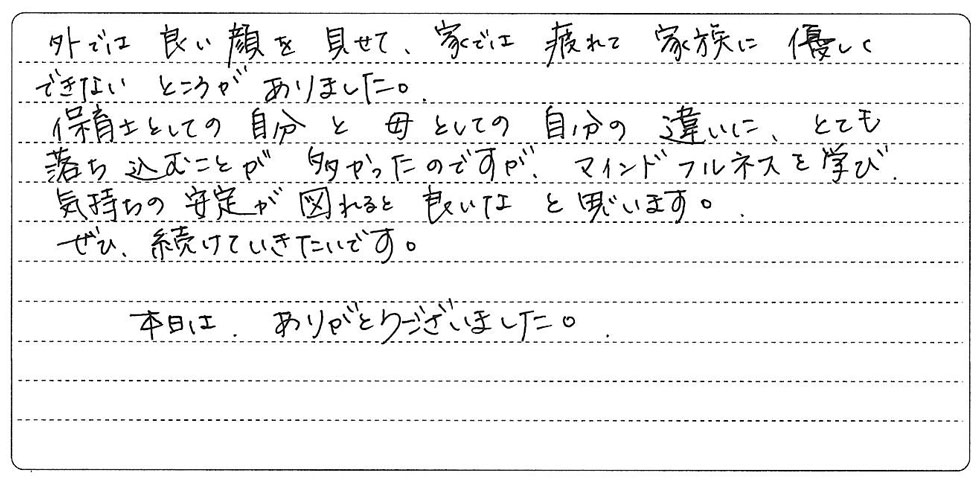 外では良い顔を見せて、家では疲れて家族に優しく
できないところがありました。
保育士としての自分と母としての自分の違いに、とても
落ち込むことが多かったのですが、マインドフルネスを学び、
気持ちの安定が図れると良いなと思います。
ぜひ、続けていきたいです。
本日は、ありがとうございました。